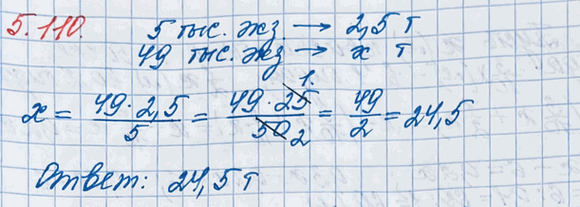 5.110. 5 тыс. экз. → 2,5 т
49 тыс. экз → x т
x = 49 · 2,5 / 5 = 49 · 25 1. / 50 2 = 49 / 2 = 24,5
Ответ: 24,5 т